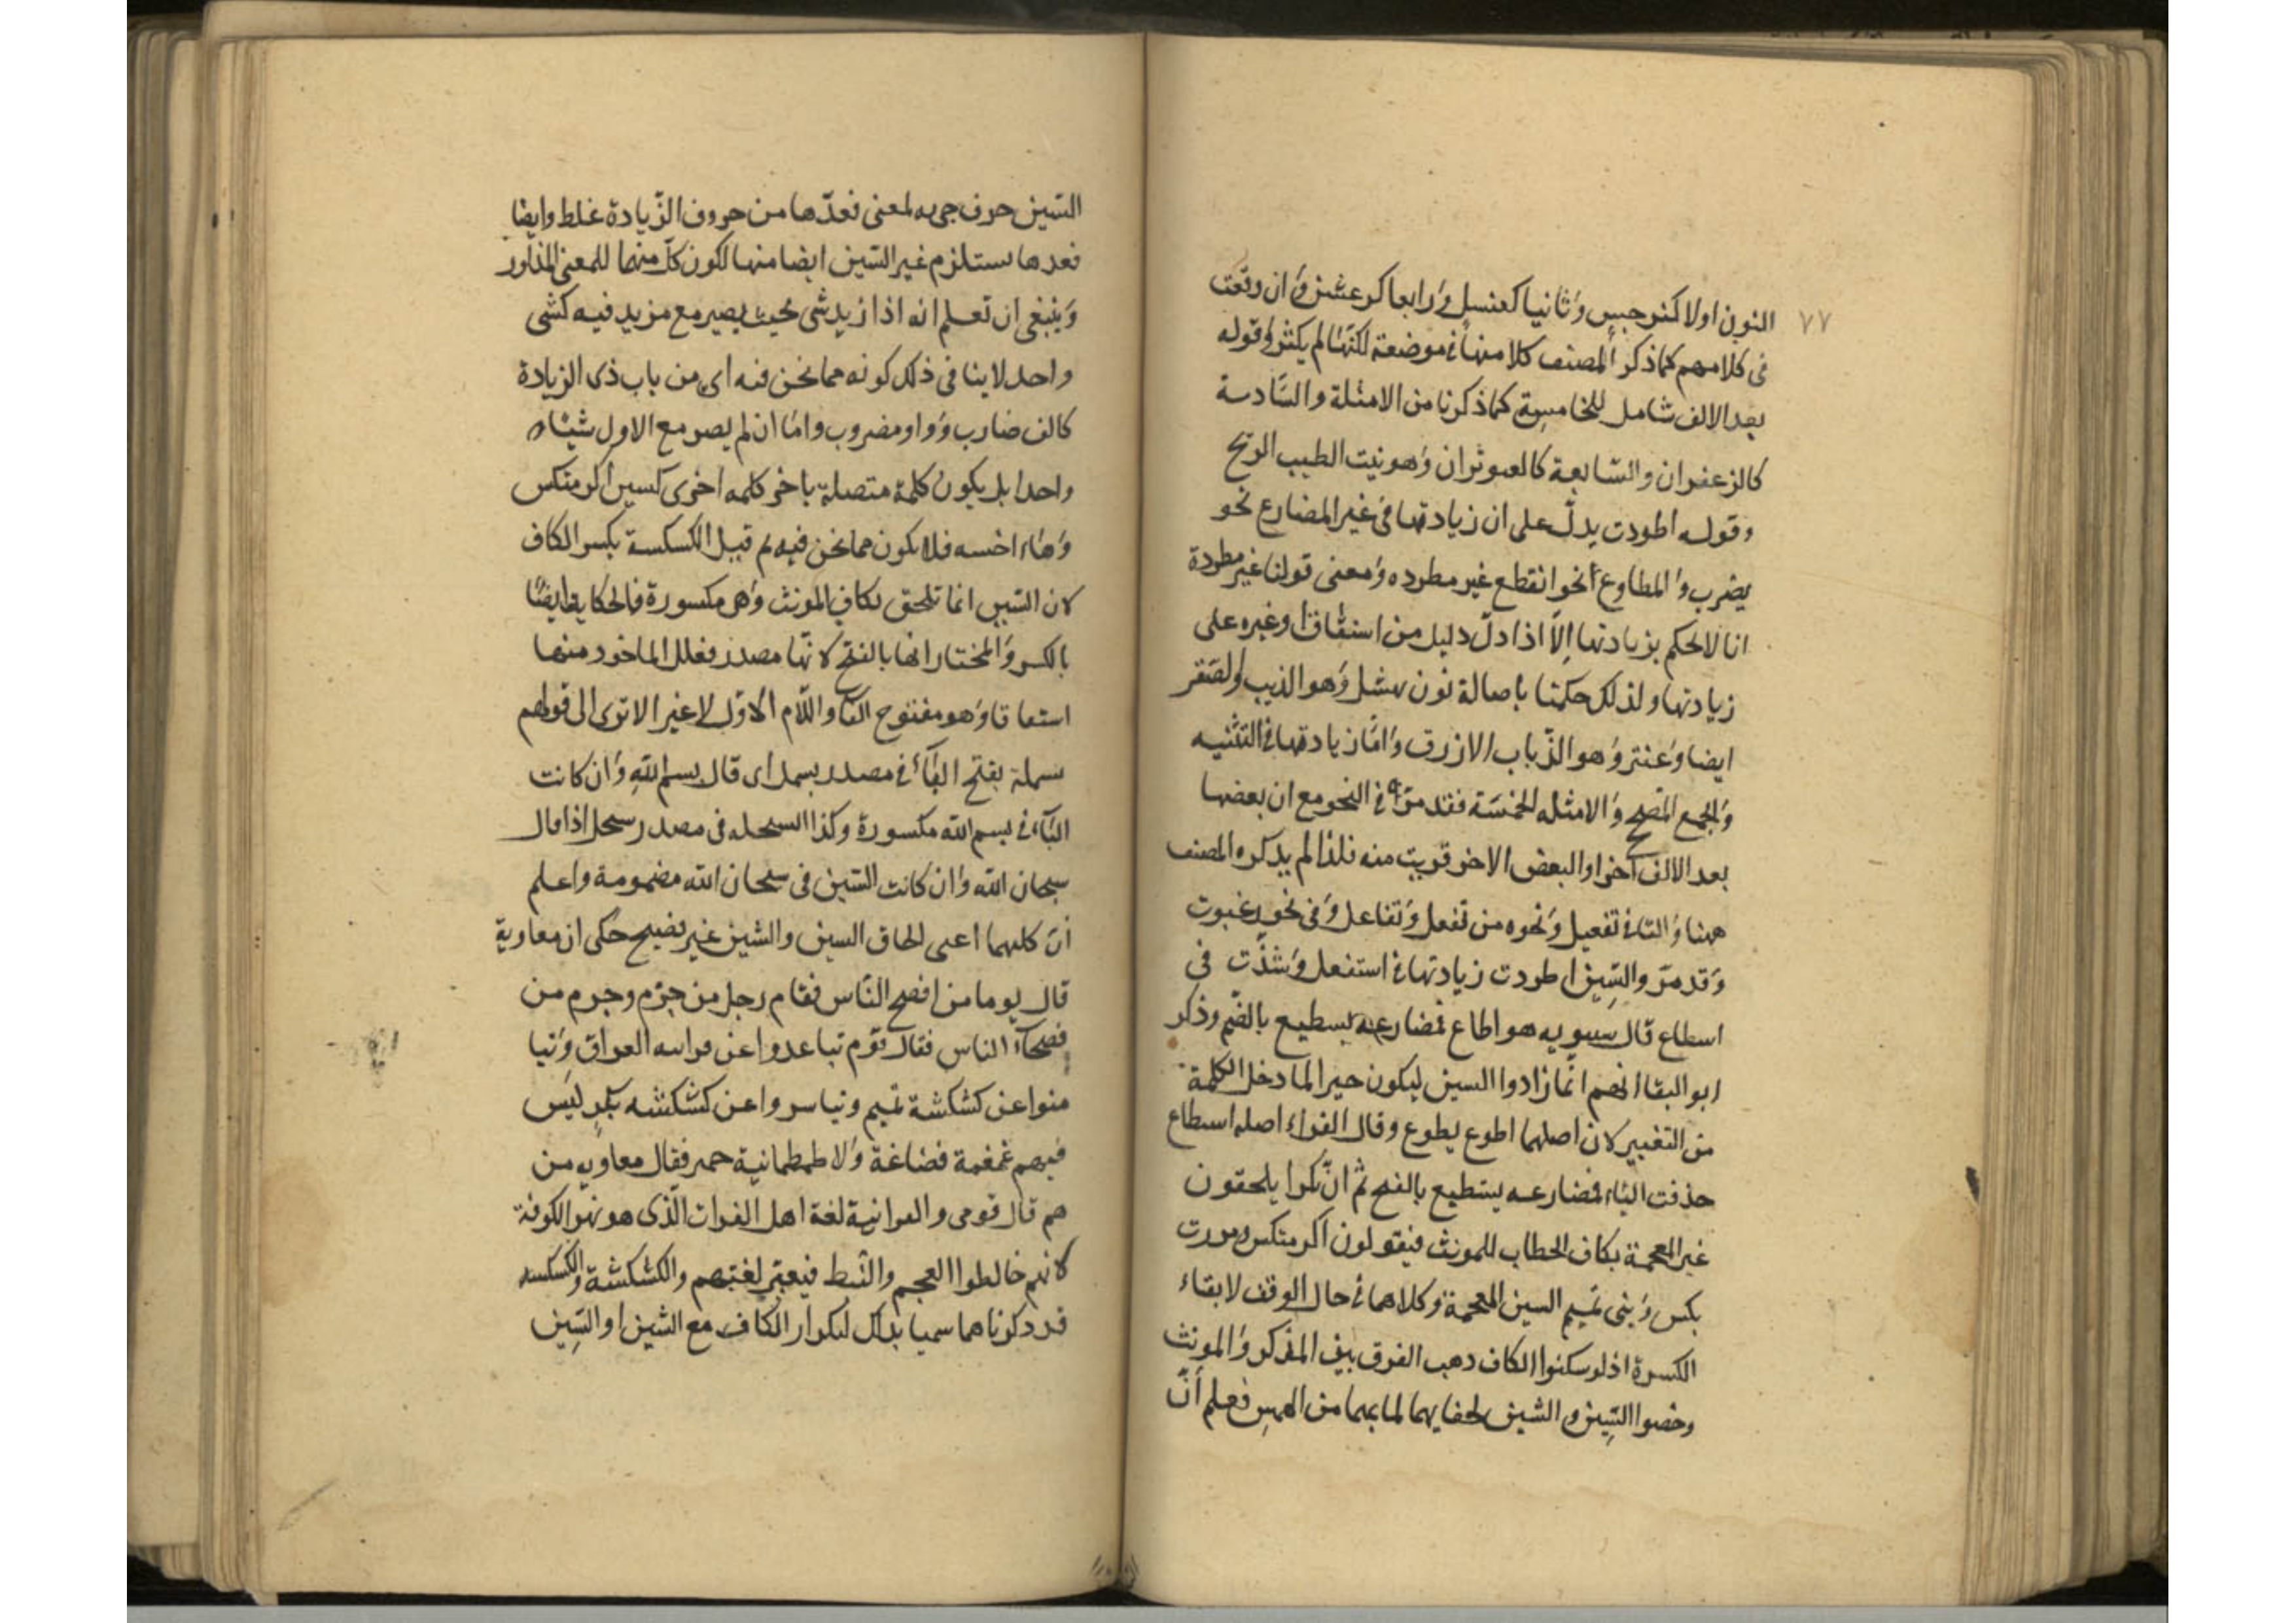 ٧٧
النون اولا كنرجس وثانيا كعنسل ورابعا كرعشن وان وقعت
فى كلامهم كما ذكر المصنف كلا منها فى موضعة لكنها لم يكثر وقوله
بعد الالف شامل للخامسة كما ذكرنا من الامثلة والسادسة
كالزعفران والسابعة كالعبوثران وهو نبت الطيب الريح
وقوله اطردت يدل على ان زيادتها فى غير المضارع نحو
يضرب والمطاوع نحو انقطع غير مطرده ومعنى قولنا غير مطردة
انا لا نحكم بزيادتها الا اذا دل دليل من اشتقاق او غيره على
زيادتها ولذلك حكمنا باصالة نون نهشل وهو الذيب والصقر
ايضا وعنتر وهو الذباب الازرق واما زيادتها فى التثنيه
والجمع المصحح والامثله الخمسة فقد مر فى النحو مع ان بعضها
بعد الالف آخرا والبعض الاخر قريب منه فلذا لم يذكره المصنف
ههنا والتا فى تفعيل ونحوه من تفعل وتفاعل وفى نحو رغبوت
وقد مر والسين اطردت زيادتها فى استفعل وشذت فى
اسطاع قال سيبويه هو اطاع فمضارعه يسطيع بالضم وذكر
ابو البقا انهم انما زادوا السين ليكون جبرا لما دخل الكلمة
من التغيير لان اصلهما اطوع يطوع وقال الفراء اصله استطاع
حذفت التاء فمضارعه يستطيع بالفتح ثم ان بكرا يلحقون
غير المعجمة بكاف الخطاب للمونث فيقولون اكرمتكس ومررت
بكس وبنى تميم السين المعجمة وكلاهما فى حال الوقف لابقاء
الكسرة اذ لو سكنوا الكاف ذهب الفرق بين المذكر والمونث
وخصوا السين والشين لخفايهما لما بهما من الهمس فعلم أنّ
السّين حرف جىء به لمعنى فعدّها من حروف الزّيادة غلط وايضا
فعدها يستلزم غير السّين ايضا منها لكون كل منهما للمعنى المذكور
وينبغى ان تعلم انه اذا زيد شى بحيث يصير مع مزيد فيه كشى
واحد لا ينافى ذلك كونه مما نحن فيه اى من باب ذى الزيادة
كالف ضارب وواو مضروب واما ان لم يصر مع الاول شيئا
واحدا بل يكون كلمة متصلة باخر كلمه اخرى كسين اكرمتكس
وهاء اخسه فلا يكون مما نحن فيه ثم قيل الكسكسة بكسر الكاف
لان السين انما تلحق بكاف المونث وهى مكسورة فالحكاية ايضا
بالكسر والمختار انها بالفتح لانها مصدر فعلل الماخوذ منها
اشتقاقا وهو مفتوح الفاء واللام الاوّل لا غير الا ترى الى قولهم
بسملة بفتح الباء فى مصدر بسمل اى قال بسم الله وان كانت
الباء فى بسم الله مكسورة وكذا السبحله فى مصدر سبحل اذا قال
سبحان الله وان كانت السّين فى سبحان الله مضمومة واعلم
أنّ كليهما اعنى الحاق السين والشين غير فصيح حكى ان معاوية
قال يوما من افصح النّاس فقام رجل من جرم وجرم من
فصحآء الناس فقال قوم تباعدوا عن فراتيه العراق وتيا
منوا عن كشكشة تميم وتياسروا عن كسكسه بكر ليس
فيهم غمغمة قضاعة ولا طمطمانية حمير فقال معاويه من
هم قال قومى والفراتية لغة اهل الفرات الّذى هو نهر الكوفة
لانهم خالطوا العجم والنّبط فيغير لغتهم والكشكشة والكسكسه
قد ذكرناهما سميا بذلك لتكرار الكاف مع الشّين او السّين